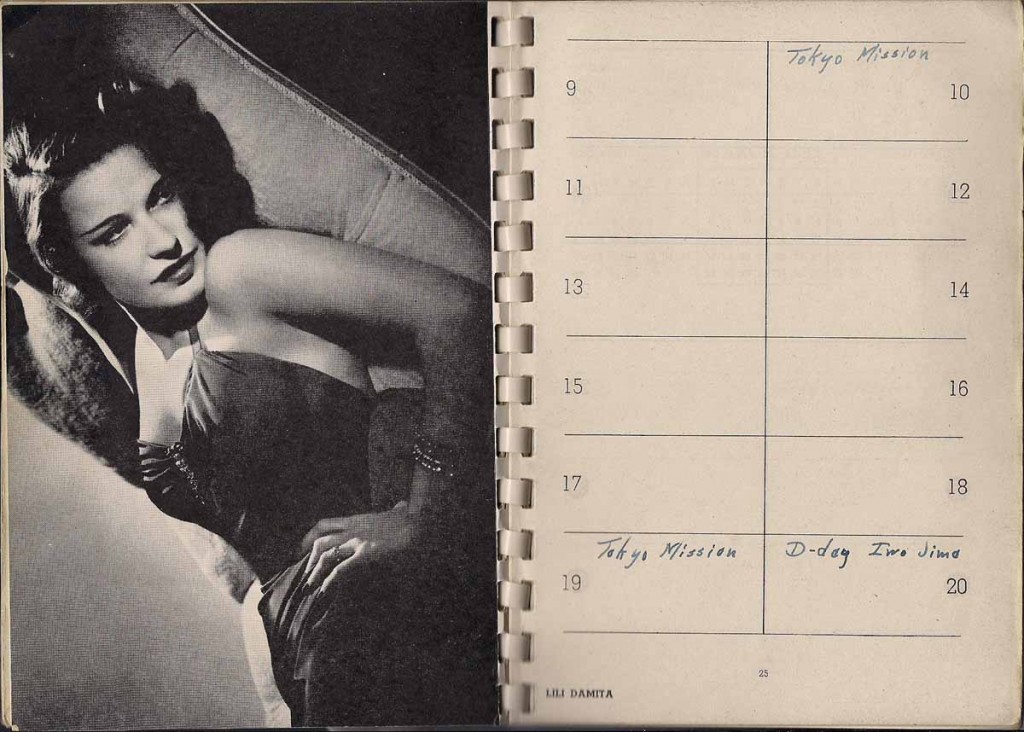 Tokyo Mission
9
10
11
12
13
14
15
16
17
18
Tokyo Mission
D-day Iwo Jima
19
20
25
LILI DAMITA